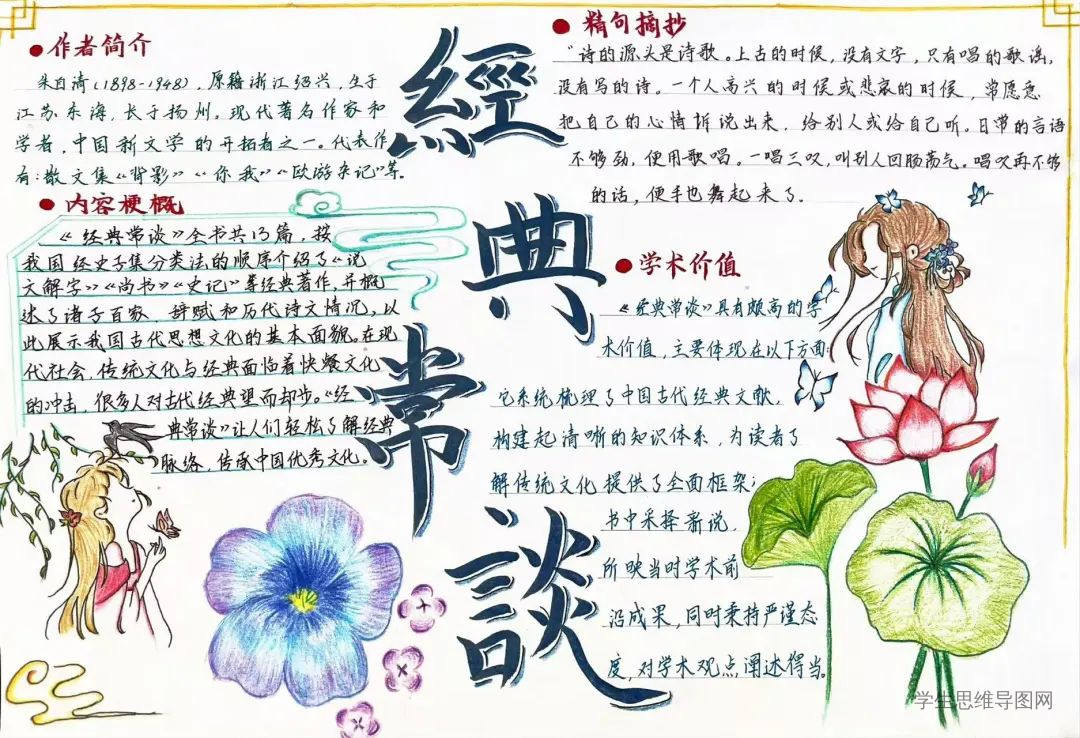 經典常談
作者简介
朱自清(1898-1948)，原籍浙江绍兴，生于
江苏东海，长于扬州。现代著名作家和
学者，中国新文学的开拓者之一。代表作
有：散文集《背影》《你我》《欧游杂记》等。
内容梗概
《经典常谈》全书共13篇，按
我国经史子集分类法的顺序介绍了《说
文解字》《尚书》《史记》等经典著作，并概
述了诸子百家，辞赋和历代诗文情况，以
此展示我国古代思想文化的基本面貌。在现
代社会，传统文化与经典面临着快餐文化
的冲击，很多人对古代经典望而却步。《经
典常谈》让人们轻松了解经典
脉络，传承中国优秀文化。
精句摘抄
“诗的源头是诗歌。上古的时候，没有文字，只有唱的歌谣，
没有写的诗。一个人高兴的时候或悲哀的时候，常愿意
把自己的心情诉说出来，给别人或给自己听。日常的言语
不够劲，便用歌唱。一唱三叹，叫别人回肠荡气。唱叹再不够
的话，便手也舞起来了。
学术价值
《经典常谈》具有颇高的学
术价值，主要体现在以下方面：
它系统梳理了中国古代经典文献，
构建起清晰的知识体系，为读者了
解传统文化提供了全面框架；
书中采择新说，
所映当时学术前
沿成果，同时秉持严谨态
度，对学术观点阐述得当。
学生思维导图网